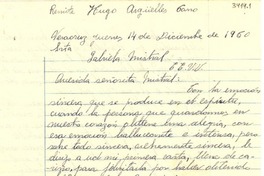 Remite Hugo Argüelles Cano
3499.1
Veracruz jueves 14 de Diciembre de 1950
Srta
Gabriela Mistral
E.E.U.U.
Querida señorita Mistral:
Con la emoción
sincera que se produce en el espíritu,
cuando la persona que guardamos en
nuestro corazón obtiene una alegría, con
esa emoción balbuceante e intensa, pero
sobre todo sincera, actamente sincera, le
dirijo a ud mi primera carta, llena de ca-
riño, para felicitarla por haber obtenido